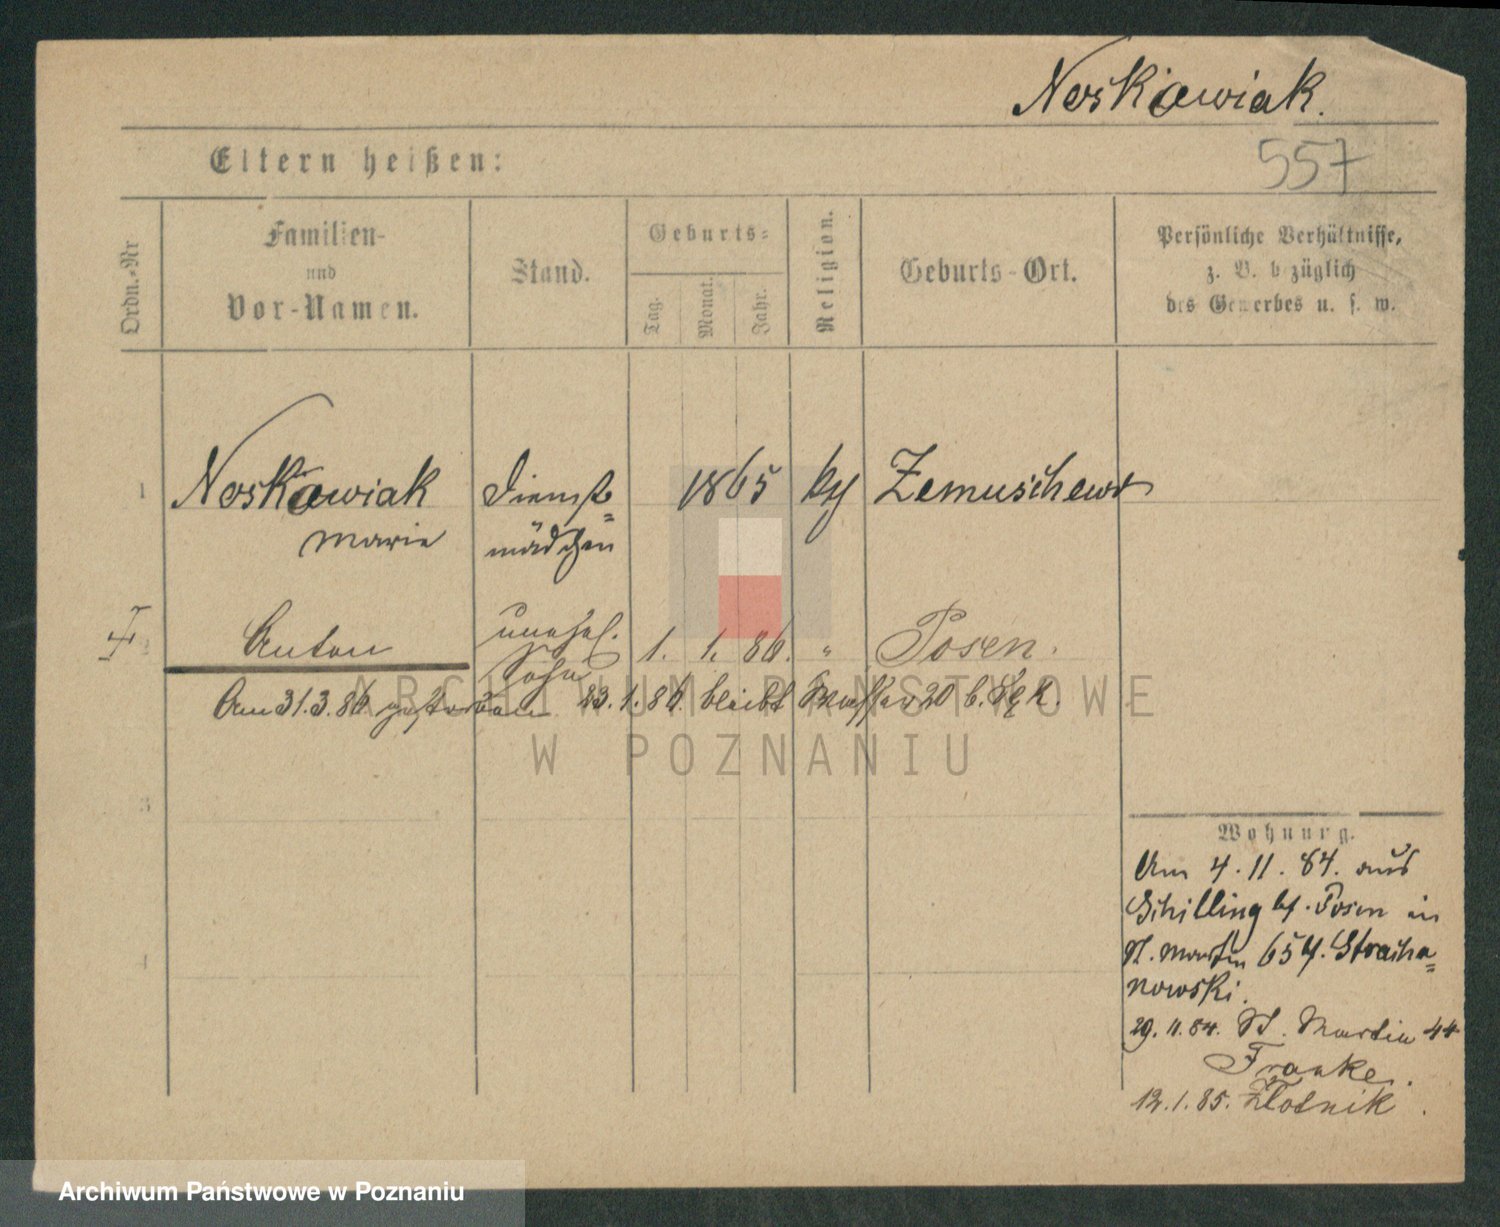 Noskowiak.
557
Eltern heißen:
Ordn.-Nr
Familien-
und
Vor-Namen.
Stand.
Geburts-
Tag.
Monat.
Jahr.
Religion.
Geburts-Ort.
Persönliche Verhältnisse,
z. B. b züglich
des Gewerbes u. s. w.
1 Noskowiak Dienst= 1865 Zemuschewo
Marie mädchen
2 Anton unehel. 1. 1. 86. " Posen.
Sohn
Am 31.3.86 gestorben 23.1.86. bleibt 20 b.
3
4
Wohnung.
Am 4.11.84. aus
Schilling Posen in
St. Martin 65 Stracha=
nowski.
29.11.84. St. Martin 44
Franke.
12.1.85. Złotnik.
ARCHIWUM PAŃSTWOWE
W POZNANIU
Archiwum Państwowe w Poznaniu